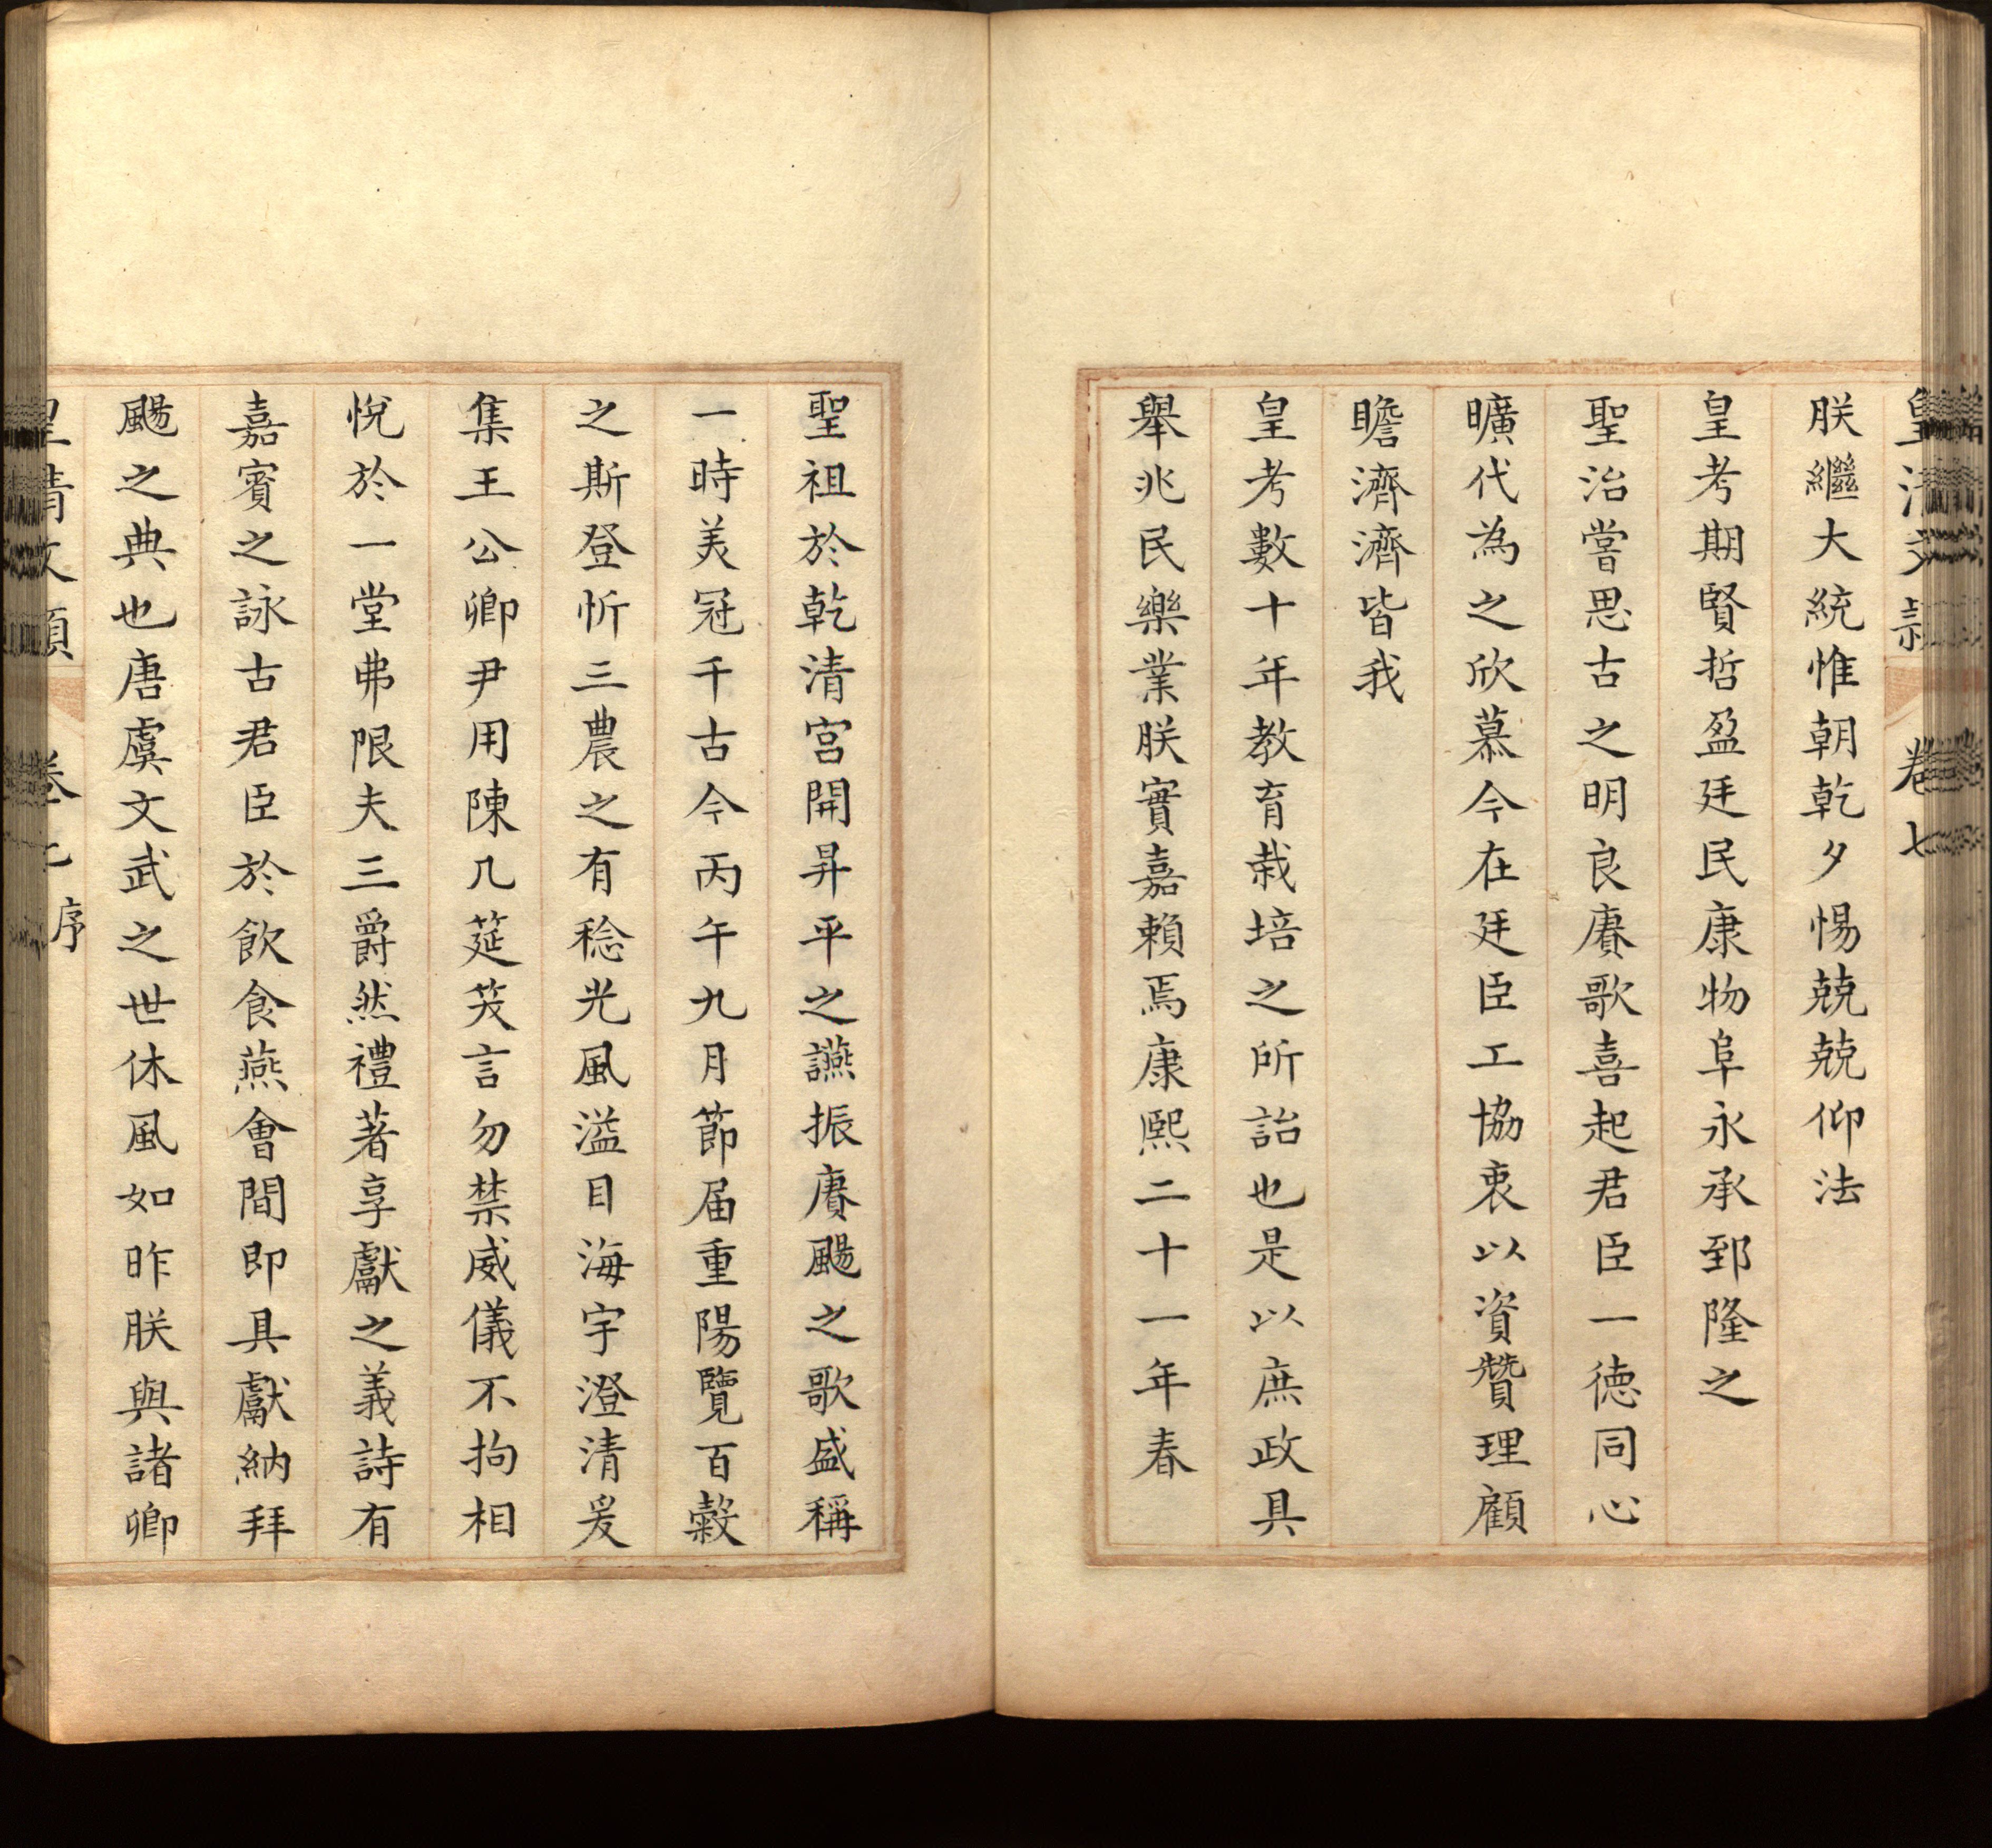 皇清文穎 卷七
朕繼大統惟朝乾夕惕兢兢仰法
皇考期賢哲盈廷民康物阜永承郅隆之
聖治嘗思古之明良賡歌喜起君臣一德同心
曠代為之欣慕今在廷臣工協衷以資贊理顧
瞻濟濟皆我
皇考數十年教育栽培之所詒也是以庶政具
舉兆民樂業朕實嘉賴焉康熙二十一年春
聖祖於乾清宮開昇平之讌振賡颺之歌盛稱
一時美冠千古今丙午九月節届重陽覽百穀
之斯登忻三農之有稔光風溢目海宇澄清爰
集王公卿尹用陳几筵笑言勿禁威儀不拘相
悅於一堂弗限夫三爵然禮著享獻之義詩有
嘉賓之詠古君臣於飲食燕會間即具獻納拜
颺之典也唐虞文武之世休風如昨朕與諸卿
皇清文穎 卷七 序